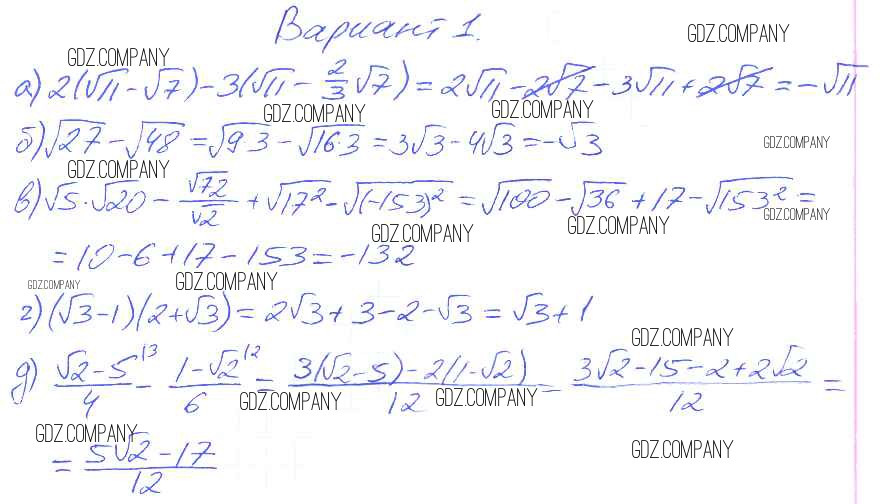 Вариант 1.
GDZ.COMPANY
GDZ.COMPANY
а) 2(√11 - √7) - 3(√11 - 2/3 √7) = 2√11 - 2√7 - 3√11 + 2√7 = -√11
GDZ.COMPANY
GDZ.COMPANY
б) √27 - √48 = √9·3 - √16·3 = 3√3 - 4√3 = -√3
GDZ.COMPANY
GDZ.COMPANY
в) √5·√20 - √72/√2 + √17² - √(-153)² = √100 - √36 + 17 - √153² =
GDZ.COMPANY
GDZ.COMPANY
GDZ.COMPANY
= 10 - 6 + 17 - 153 = -132
GDZ.COMPANY
GDZ.COMPANY
г) (√3 - 1)(2 + √3) = 2√3 + 3 - 2 - √3 = √3 + 1
GDZ.COMPANY
д) (√2 - 5)/4 |3 - (1 - √2)/6 |2 = (3(√2 - 5) - 2(1 - √2))/12 = (3√2 - 15 - 2 + 2√2)/12 =
GDZ.COMPANY
GDZ.COMPANY
GDZ.COMPANY
= (5√2 - 17)/12
GDZ.COMPANY